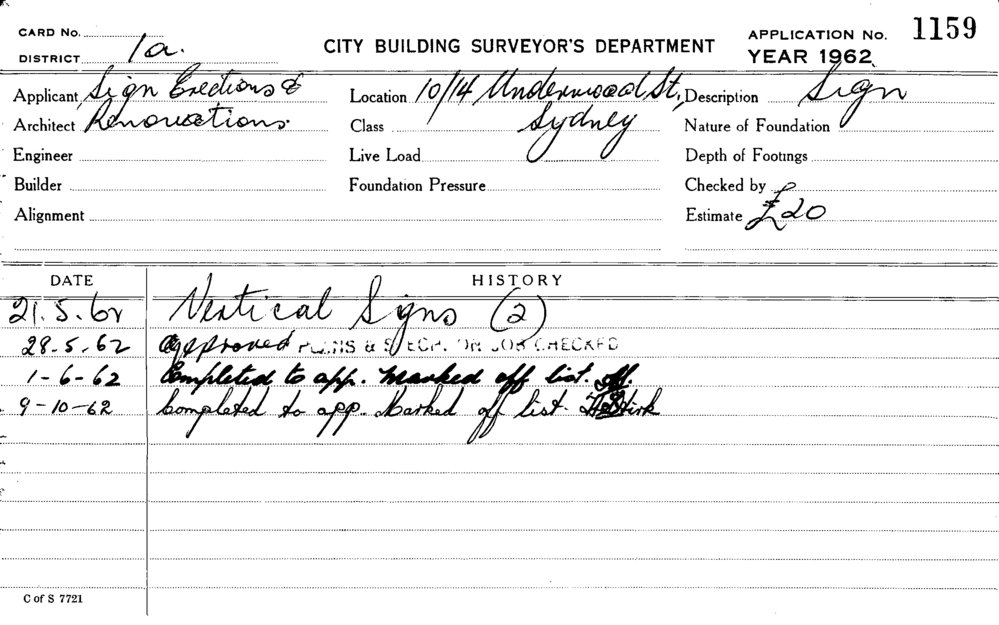 CARD No.
DISTRICT 1a.
CITY BUILDING SURVEYOR'S DEPARTMENT
APPLICATION No. 1159
YEAR 1962
Applicant Sign Erections & Location 10/14 Underwood St, Description Sign
Architect Renovations. Class Sydney Nature of Foundation
Engineer Live Load Depth of Footings
Builder Foundation Pressure Checked by
Alignment Estimate £20
DATE HISTORY
21.5.62 Vertical Signs (2)
28.5.62 Approved PLANS & SPECN. ON JOB CHECKED
1-6-62 Completed to app. Marked off list.
9-10-62 Completed to app. Marked off list.
C of S 7721